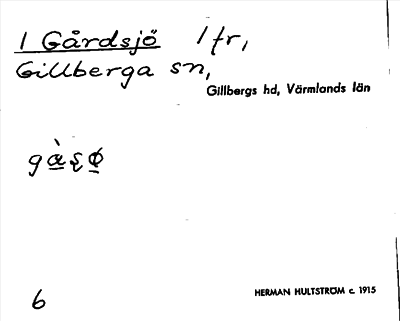 1 Gårdsjö 1 fr,
Gillberga sn,
Gillbergs hd, Värmlands län
6
HERMAN HULTSTRÖM c. 1915